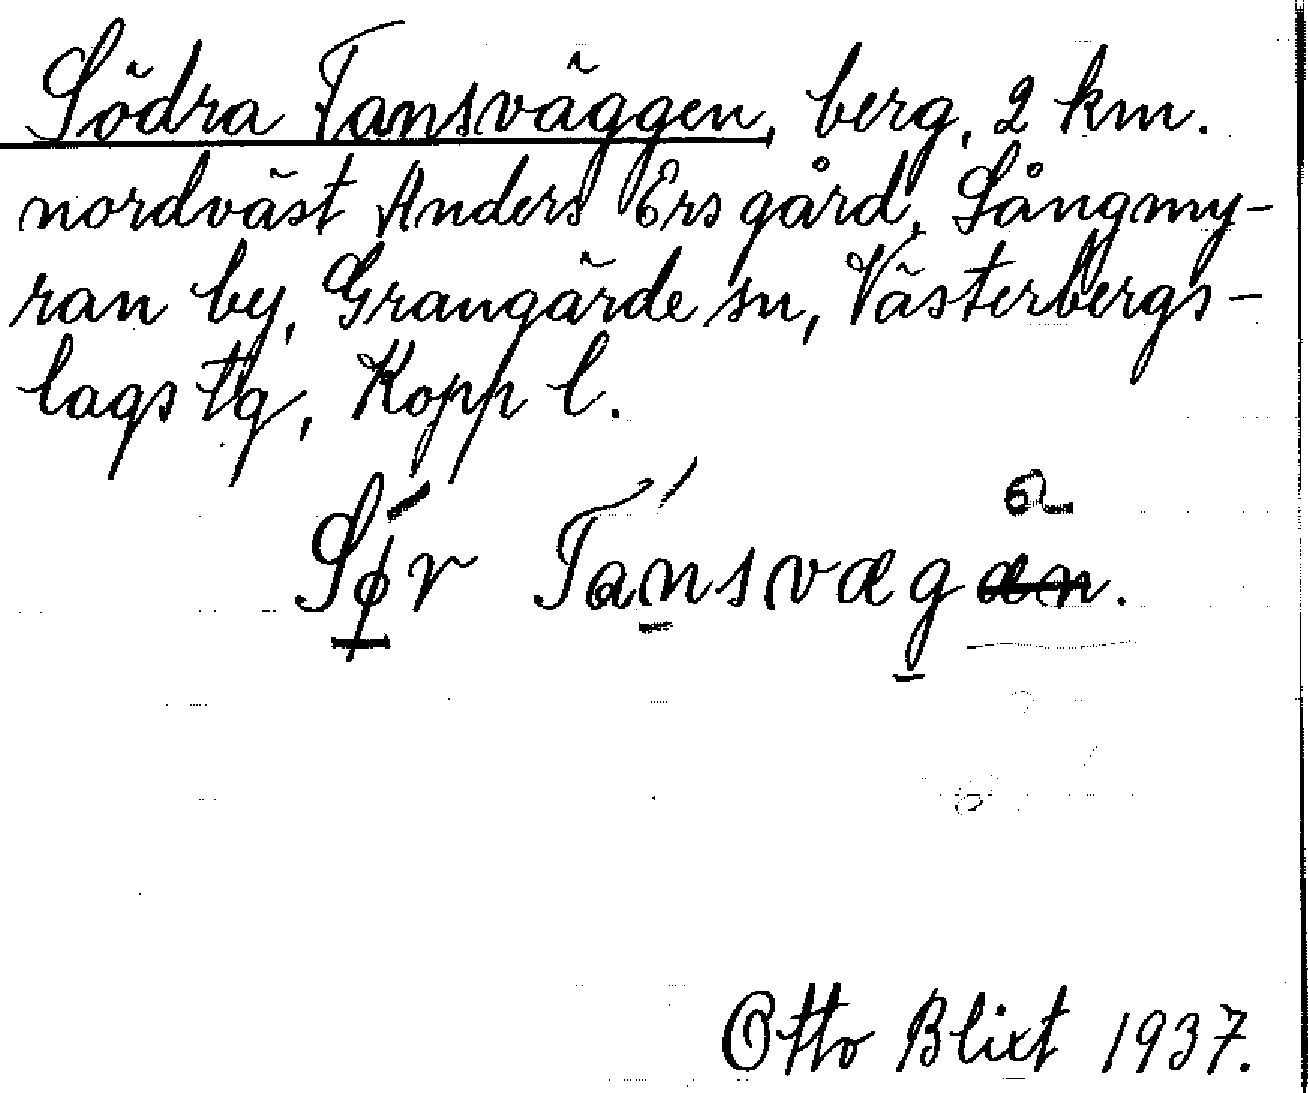 Södra Tansväggen, berg, 2 km.
nordväst Anders Ers gård, Sångmy-
ran by, Grangärde sn, Västerbergs-
lags tg, Kopp l.
Sør Tansvægæn.
Otto Blixt 1937.